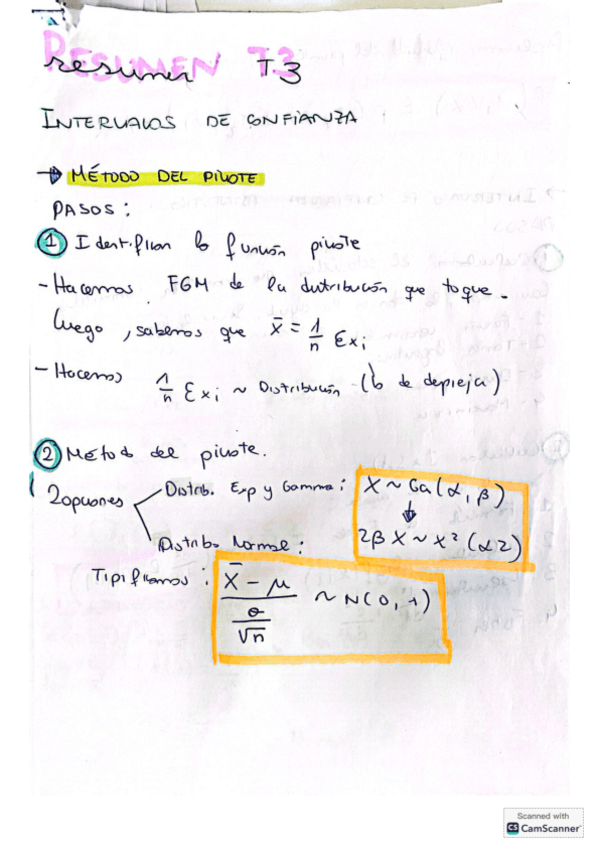 RESUMEN
resumen T3
INTERVALOS DE CONFIANZA
→ MÉTODO DEL PIVOTE
PASOS:
① Identifican la función pivote
- Hacemos FGM de la distribución que toque.
luego, sabemos que x̄ = 1/n Σxi
- Hacemos 1/n Σxi ~ Distribución (lo de depieja)
② Método del pivote.
2 opciones
Distrib. Exp y Gamma: X ~ Ga(α, β)
↓
2βX ~ x²(α2)
Distrib Normal:
Tipificamos: (X̄ - μ) / (σ/√n) ~ N(0,1)
Scanned with
CS CamScanner